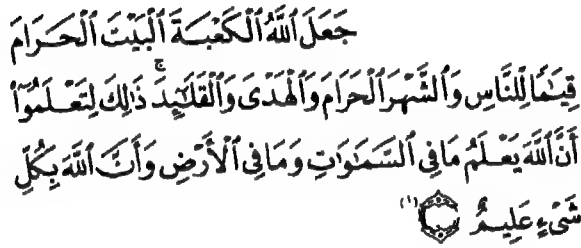 جَعَلَ ٱللَّهُ ٱلْكَعْبَةَ ٱلْبَيْتَ ٱلْحَرَامَ
قِيَـٰمًا لِّلنَّاسِ وَٱلشَّهْرَ ٱلْحَرَامَ وَٱلْهَدْىَ وَٱلْقَلَـٰٓئِدَ ۚ ذَٰلِكَ لِتَعْلَمُوٓا۟
أَنَّ ٱللَّهَ يَعْلَمُ مَا فِى ٱلسَّمَـٰوَٰتِ وَمَا فِى ٱلْأَرْضِ وَأَنَّ ٱللَّهَ بِكُلِّ
شَىْءٍ عَلِيمٌ ۝ (١)